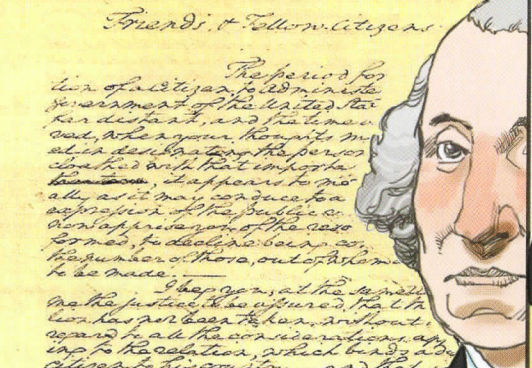 Friends, & Fellow-Citizens
The period for
tion of a Citizen, to Administe
government of the United Stat
ver distant, and the time a
ved, when your thoughts m
ed in designating the person
cloathed with that importa
it appears to me
ally as it may conduce to a
expression of the public
now apprise you of the reso
formed, to decline being co
the number of those, out of whom
to be made.
I beg you, at the same
me the justice to be assured, that th
tion has not been taken, without
regard to all the considerations ap
ing to the relation, which binds a d
citizen to his country and that